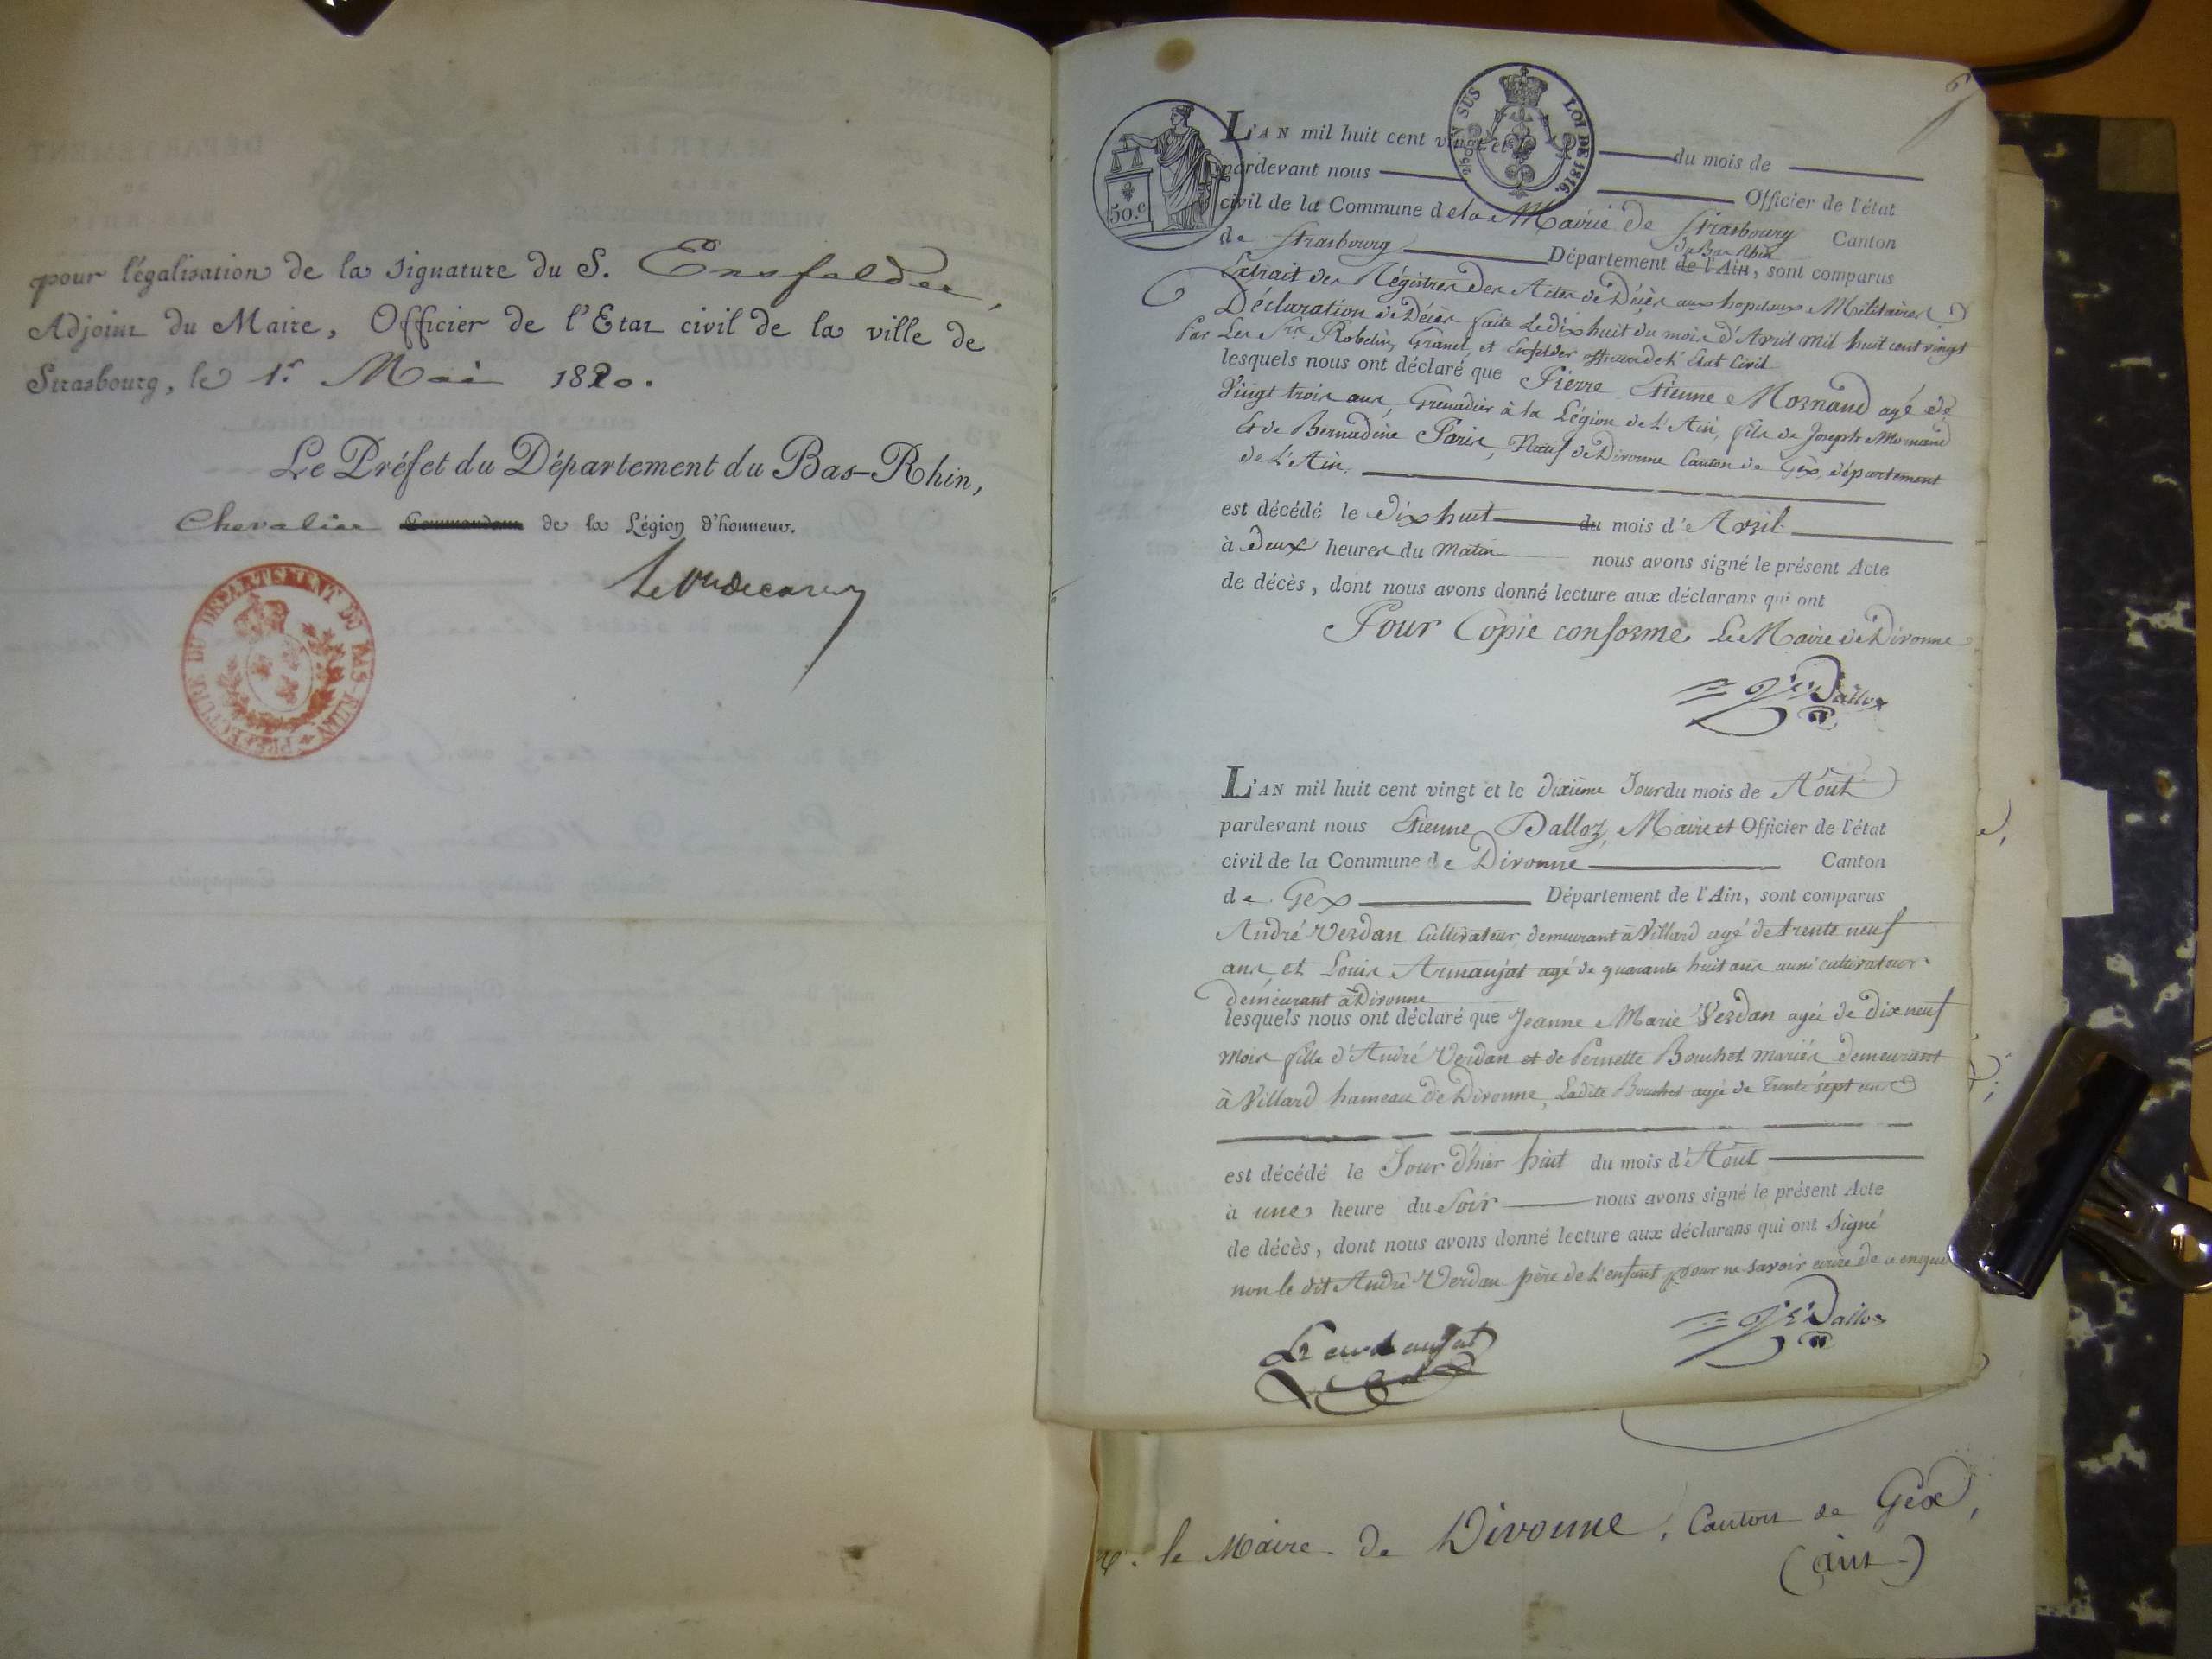 pour légalisation de la signature du S. Ensfelder,
Adjoint du Maire, Officier de l'Etat civil de la ville de
Strasbourg, le 1.r Mai 1820.
Le Préfet du Département du Bas-Rhin,
Chevalier Commandant de la Légion d'honneur.
PRÉFECTURE DU DÉPARTEMENT DU BAS-RHIN
50.c
EN SUS
LOI DE 1816.
L'AN mil huit cent vingt et du mois de
pardevant nous Officier de l'état
civil de la Commune de la Mairie de Strasbourg Canton
de Strasbourg Département de l'Ain, sont comparus
du Bas Rhin
Extrait des Régistres des Actes de Décès aux hopitaux Militaires
Déclaration de Décès faite Le dix huit du mois d'Avril mil huit cent vingt
Par Les Srs Robelin, Granel et Ensfelder officier de l'Etat Civil
lesquels nous ont déclaré que Pierre Etienne Mornand agé de
Vingt trois ans, Grenadier à la Légion de L'Ain, fils de Joseph Mornand
Et de Bernadine Paris, Natif de Divonne Canton de Gex, département
de L'Ain.
est décédé le dix huit du mois d'Avril
à deux heures du matin nous avons signé le présent Acte
de décès, dont nous avons donné lecture aux déclarans qui ont
Pour Copie conforme Le Maire de Divonne
Dalloz
L'AN mil huit cent vingt et le dixieme Jour du mois de Aout
pardevant nous Etienne Dalloz, Maire et Officier de l'état
civil de la Commune de Divonne Canton
de Gex Département de l'Ain, sont comparus
André Verdan Cultivateur demeurant à Villard agé de trente neuf
ans et Louis Armanjat agé de quarante huit ans aussi cultivateur
demeurant à Divonne
lesquels nous ont déclaré que Jeanne Marie Verdan agée de dix neuf
mois fille d'André Verdan et de Pernette Bouchet mariés demeurant
à Villard hameau de Divonne, Ladite Bouchet agée de Trente sept ans
est décédé le Jour d'hier huit du mois d'Aout
à une heure du Soir nous avons signé le présent Acte
de décès, dont nous avons donné lecture aux déclarans qui ont Signé
non le dit André Verdan père de l'enfant pour ne savoir écrire de ce enquis
Dalloz
le Maire de Divonne, Canton de Gex,
(ain)